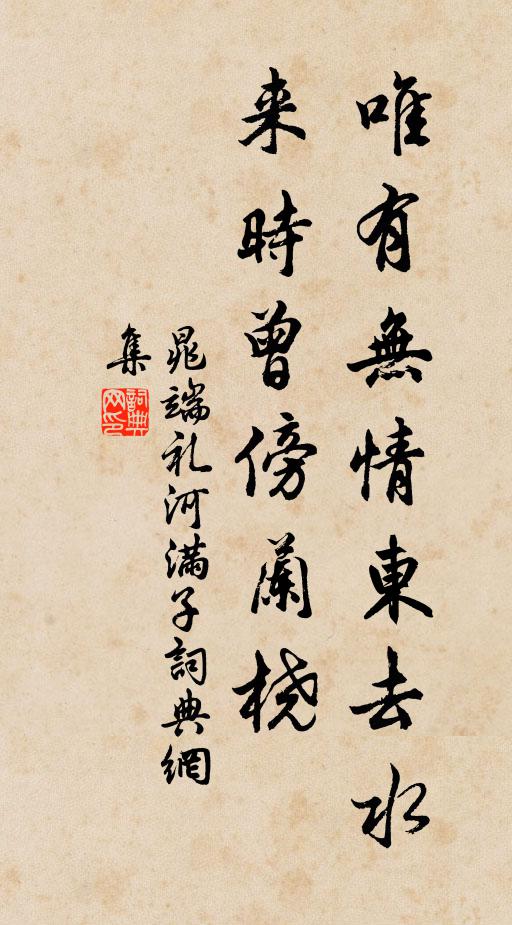 唯有無情東去水
来時曾傍蘭桡
晁端礼河满子詞典網
集
詞典网印